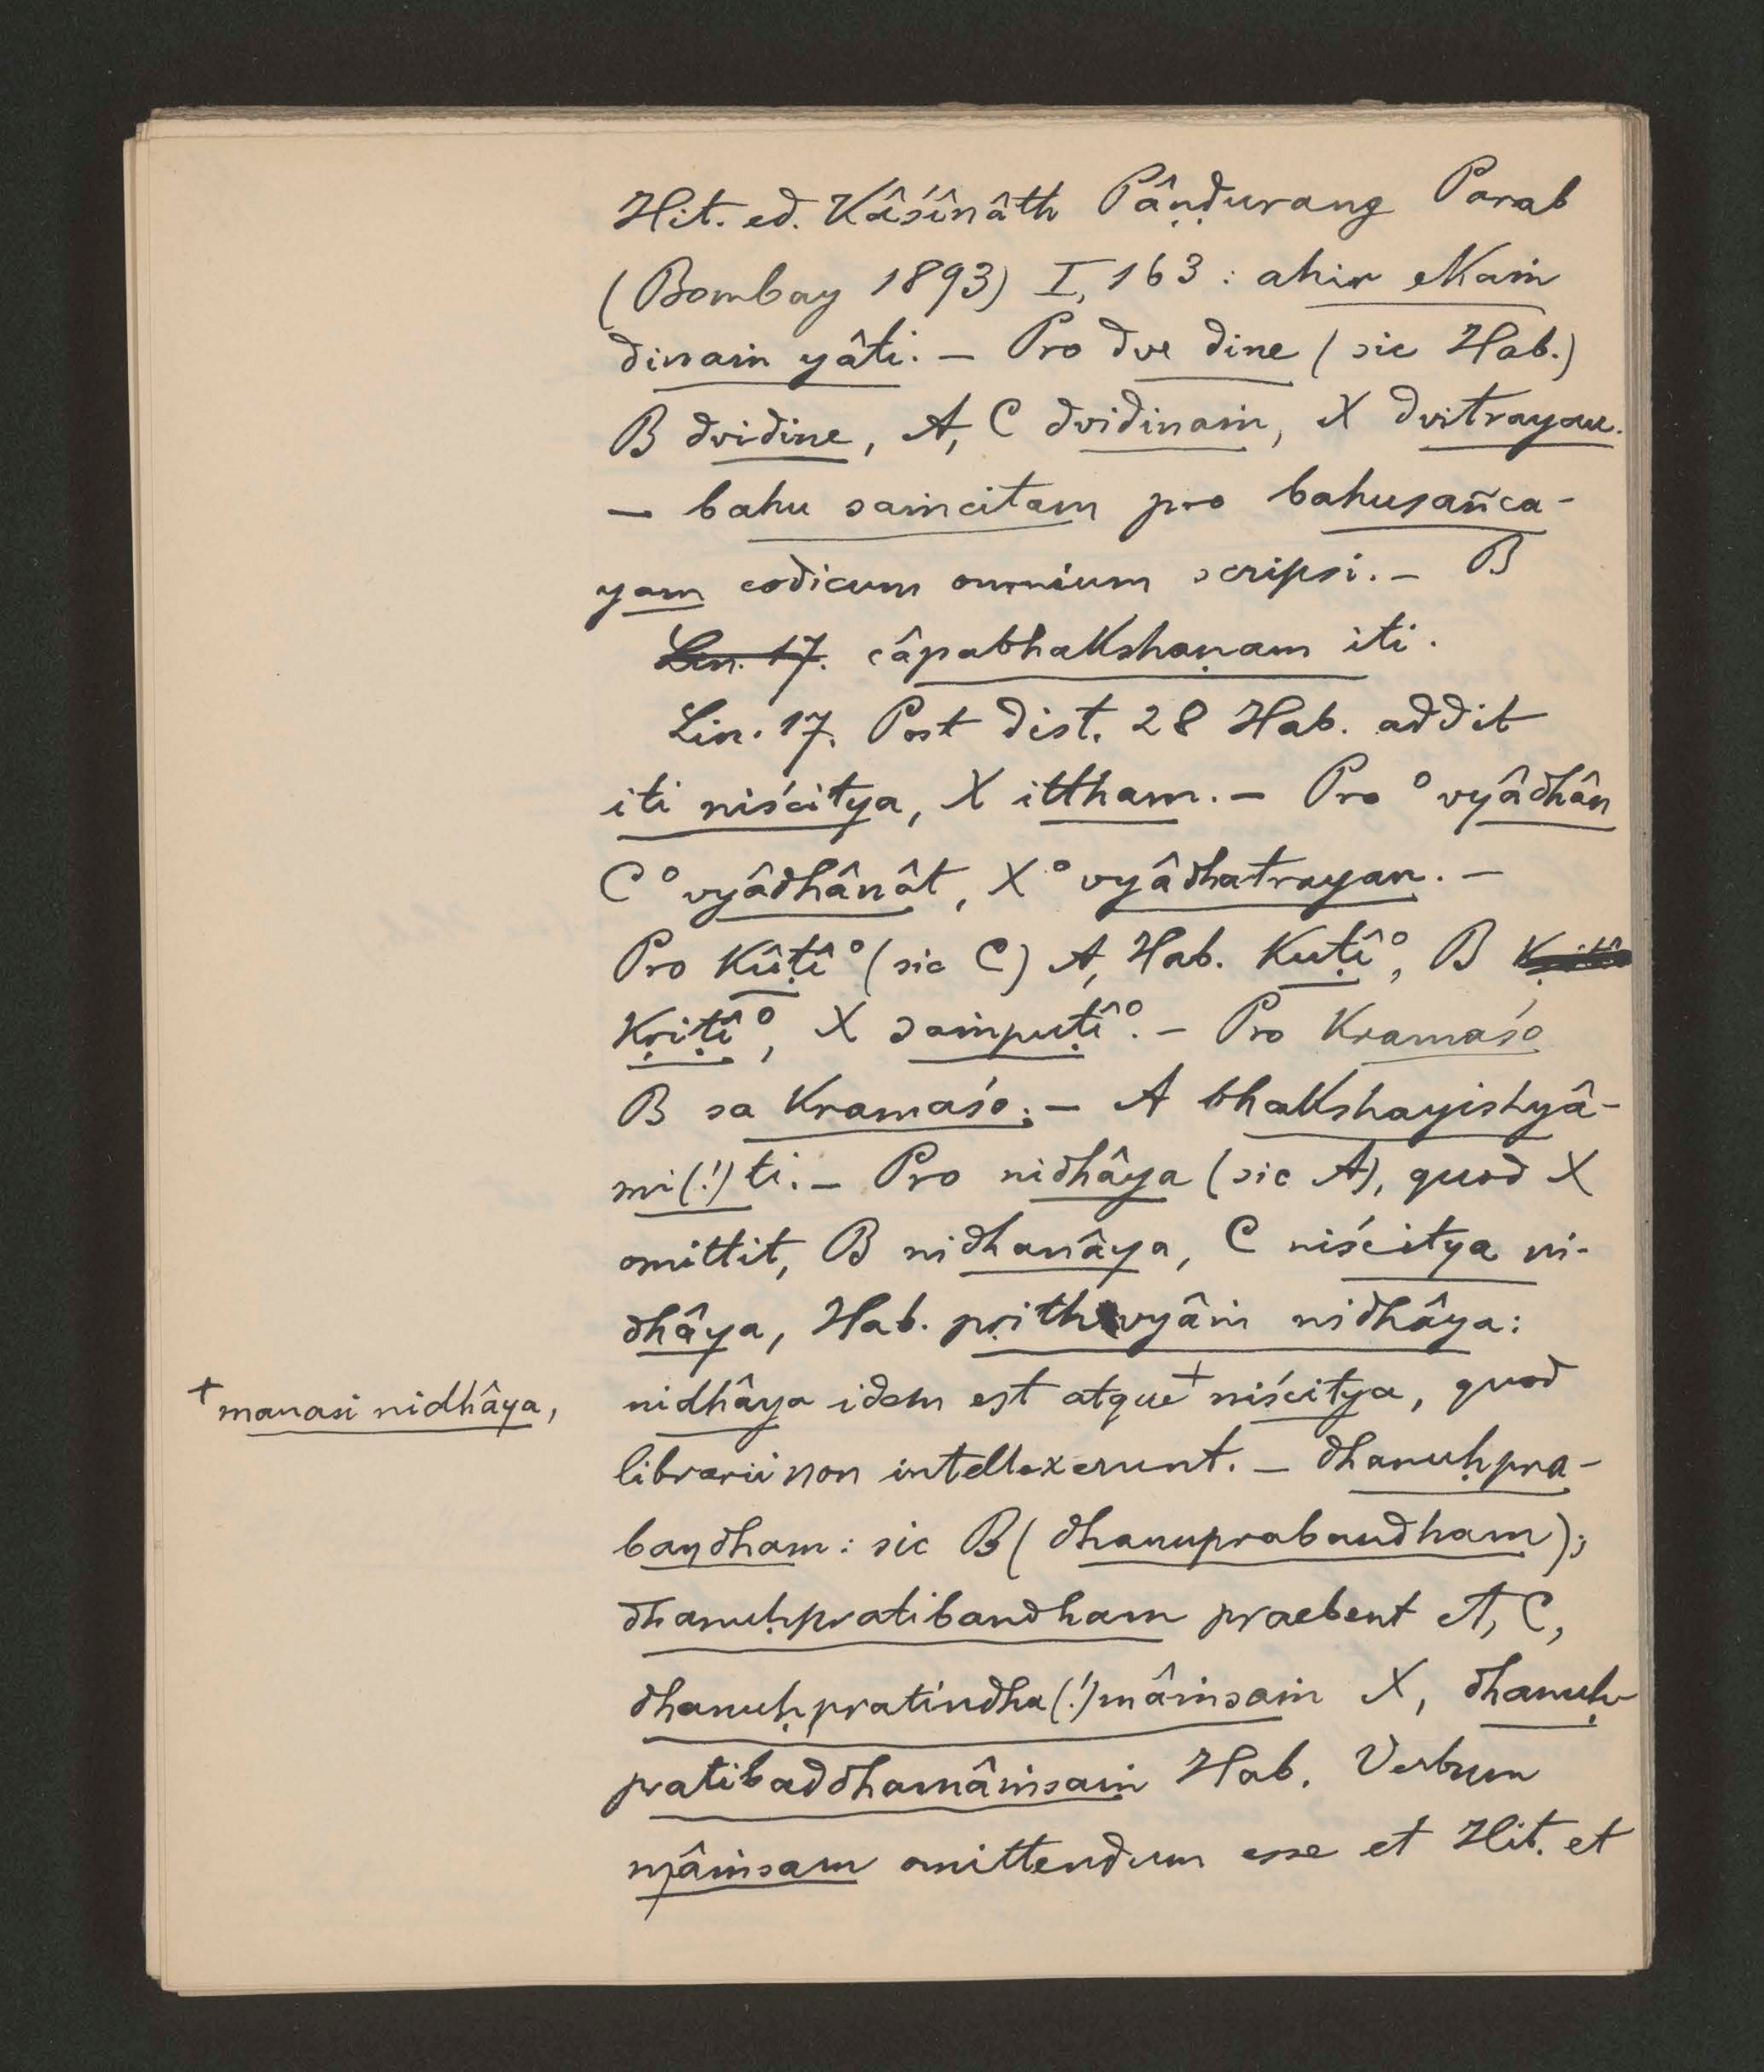 Hit. ed. Kâśînâth Pâṇḍurang Parab
(Bombay 1893) I, 163 : ahir ekaṁ
dinaṁ yâti. — Pro dve dine (sic Hab.)
B dvidine, A, C dvidinaṁ, X dvitrayau.
— bahu saṁcitam pro bahusañca-
yam codicum omnium scripsi. — B
Lin. 17. câpabhakshaṇam iti.
Lin. 17. Post dist. 28 Hab. addit
iti niścitya, X ittham. — Pro °vyâdhân
C °vyâdhânât, X °vyâdhatrayan. —
Pro kûṭî° (sic C) A, Hab. kuṭî°, B
kṛiṭî°, X saṁpuṭî°. — Pro kramaśo
B sa kramaśo; — A bhakshayishyâ-
mi(!)ti. — Pro nidhâya (sic A), quod X
omittit, B nidhanâya, C niścitya ni-
dhâya, Hab. pṛithivyâṁ nidhâya:
nidhâya idem est atque + niścitya, quod
+ manasi nidhâya,
librarii non intellexerunt. — dhanuḥpra-
bandham: sic B (dhanuprabandham);
dhanuḥpratibandham praebent A, C,
dhanuḥpratindha(!)mâṁsaṁ X, dhanuḥ-
pratibaddhamâṁsaṁ Hab. Verbum
mâṁsam omittendum esse et Hit. et